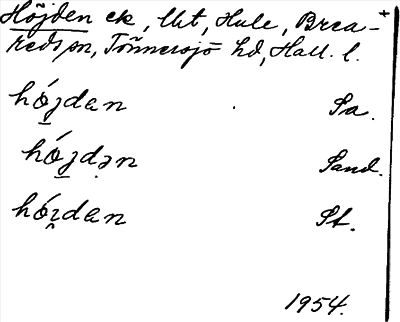 Höjden ek, Ust, Hule, Brea-
reds sn, Tönnersjö hd, Hall. l.
hó̲jdan Sa.
hó̲jdən Sand.
hó̲jdan St.
1954.